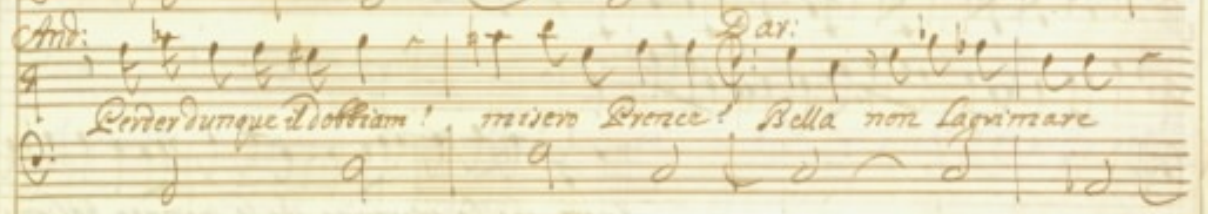 And: Dar:
Perder dunque il dobbiam! misero Prence! Bella non lagrimare